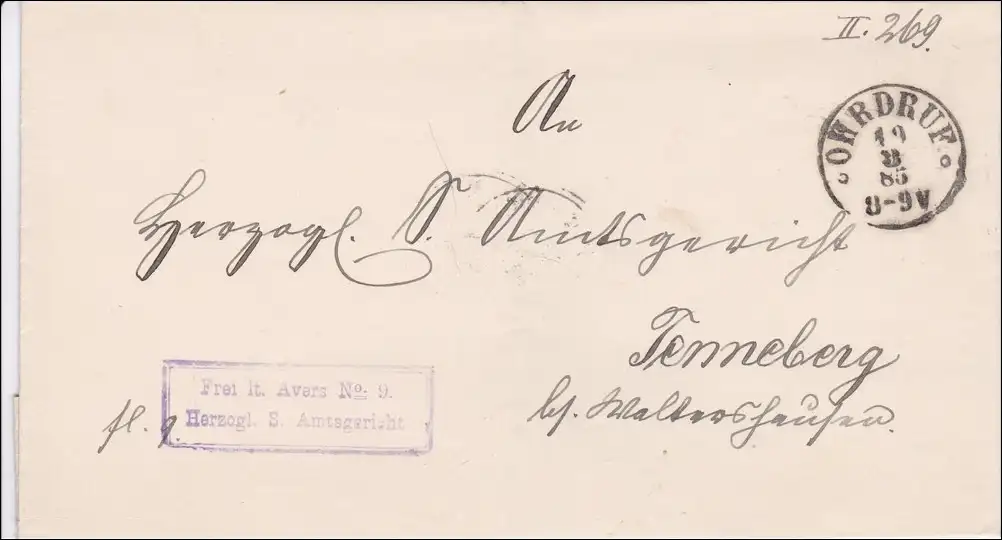 II. 269.
An
OHRDRUF
19
85
8-9V
Herzogl. S. Amtsgericht
Tenneberg
b/. Waltershausen.
Frei lt. Avers No. 9.
Herzogl. S. Amtsgericht